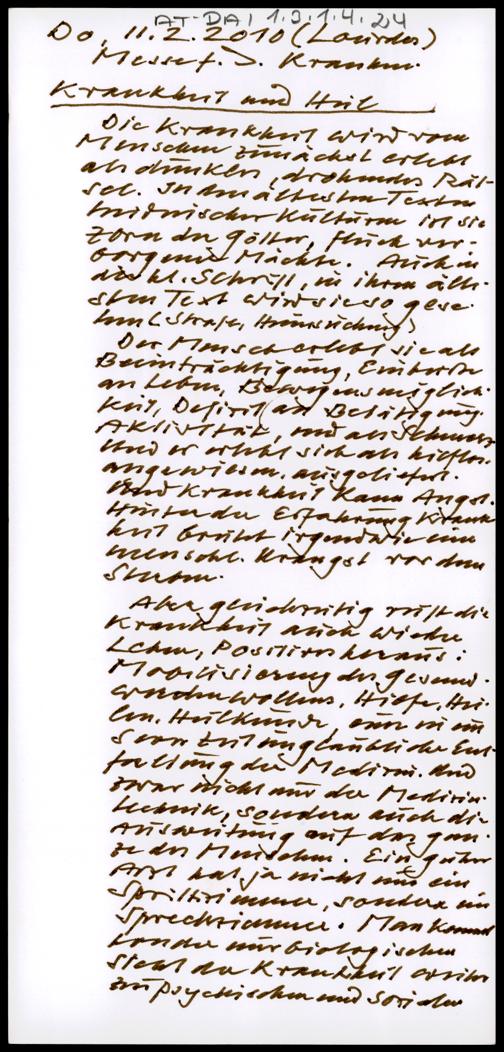 AT-DAI 1.3.1.4.24
Do, 11.2.2010 (Lourdes)
Messe f. D. Kranken.
Krankheit und Heil
Die Krankheit wird vom
Menschen zunächst erlebt
als dunkles, drohendes Rät-
sel. In den ältesten Texten
heidnischer Kulturen ist sie
Zorn der Götter, Fluch ver-
borgener Mächte. Auch in
der hl. Schrift, in ihren älte-
sten Text wird sie so gese-
hen (Strafe, Heimsuchung)
Der Mensch erlebt sie als
Beeinträchtigung, Einbuße
an Leben, Bewegungsmöglich-
keit, Defizit an Betätigung
Aktivität, und als Schmerz
Und er erlebt sich als hilflos.
angewiesen, ausgeliefert.
Und Krankheit kann Angst.
Hinter der Erfahrung Krank
heit brütet irgendwie eine
menschl. Urangst vor dem
Sterben.
Aber gleichzeitig ruft die
Krankheit auch wieder
Leben, Positives heraus:
Mobilisierung des gesund-
werden wollens, Hilfe, Hei-
len, Heilkunde, eine in un
serer Zeit unglaubliche Ent-
faltung der Medizin. Und
zwar nicht nur der Medizin
technik, sondern auch die
Ausweitung auf das gan-
ze des Menschen. Ein guter
Arzt hat ja nicht nur ein
Spritzzimmer, sondern ein
Sprechzimmer. Man kommt
von der nur biologischen
Sicht der Krankheit weiter
zur psychischen und sozialen